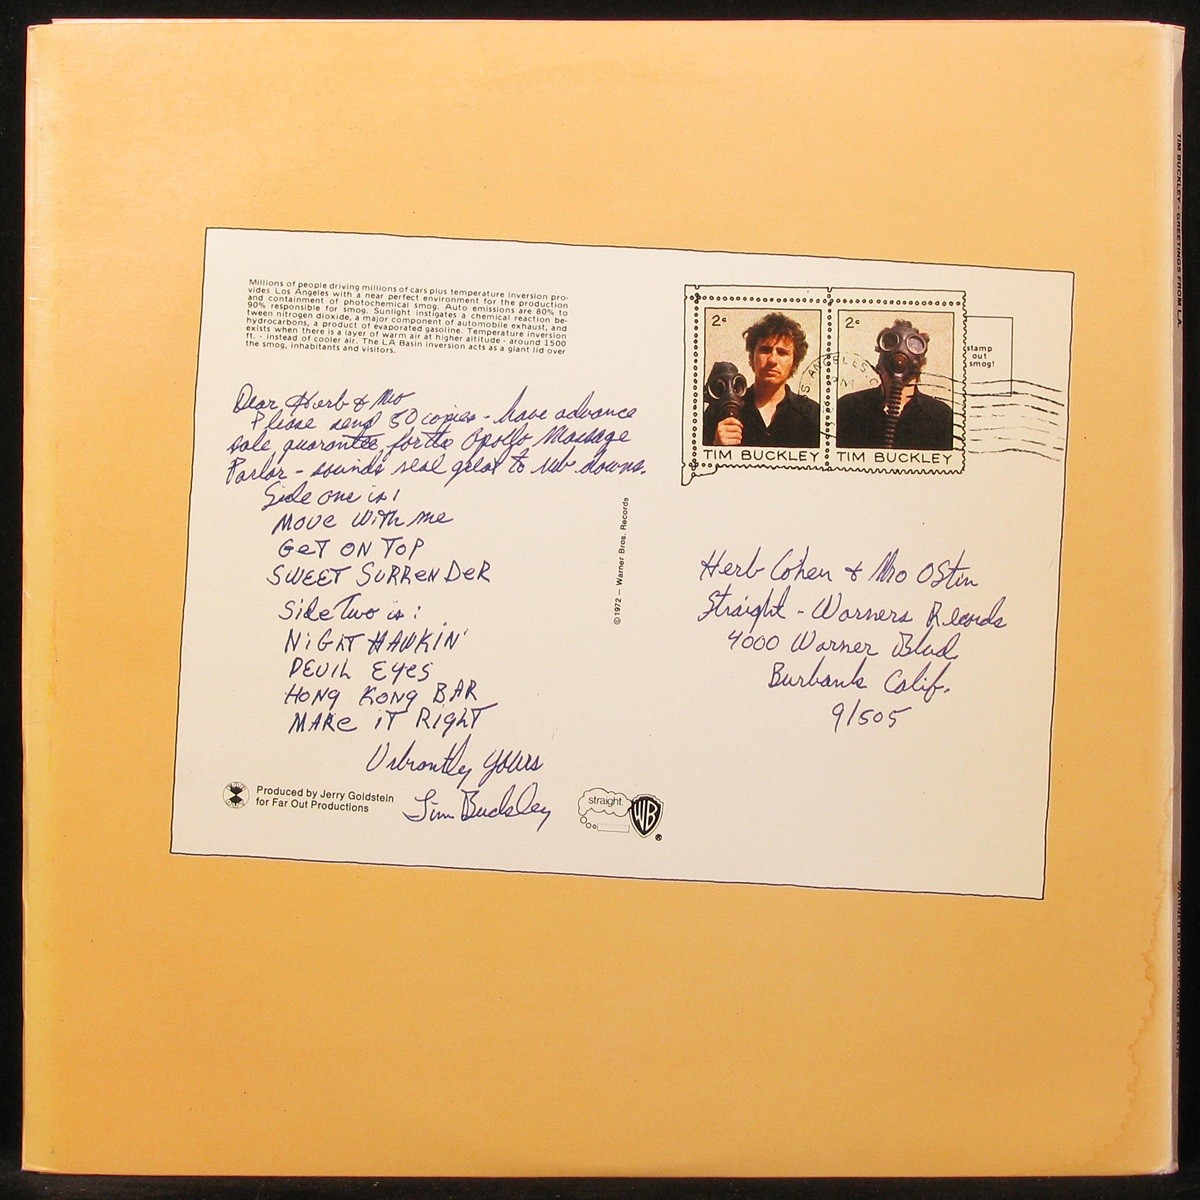 Millions of people driving millions of cars plus temperature inversion pro-
vides Los Angeles with a near perfect environment for the production
and containment of photochemical smog. Auto emissions are 80% to
90% responsible for smog. Sunlight instigates a chemical reaction be-
tween nitrogen dioxide, a major component of automobile exhaust, and
hydrocarbons, a product of evaporated gasoline. Temperature inversion
exists when there is a layer of warm air at higher altitude - around 1500
ft. - instead of cooler air. The LA Basin inversion acts as a giant lid over
the smog, inhabitants and visitors.
Dear Herb & Mo
Please send 50 copies - have advance
sale guarantee for the Apollo Massage
Parlor - sounds real great to rub downs.
Side one is!
MOVE WITH ME
GET ON TOP
SWEET SURRENDER
Side Two is:
NIGHT HAWKIN'
DEVIL EYES
HONG KONG BAR
MAKE IT RIGHT
Vibrantly yours
Tim Buckley
Produced by Jerry Goldstein
for Far Out Productions
straight.
WB
®
©1972 — Warner Bros. Records
2¢
2¢
TIM BUCKLEY
TIM BUCKLEY
stamp
out
smog!
Herb Cohen & Mo Ostin
Straight - Warners Records
4000 Warner Blvd.
Burbank Calif.
91505
TIM BUCKLEY - GREETINGS FROM L.A.